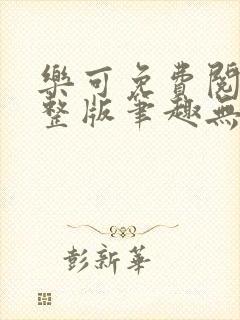 樂可免費閱
整版筆趣無
彭新華